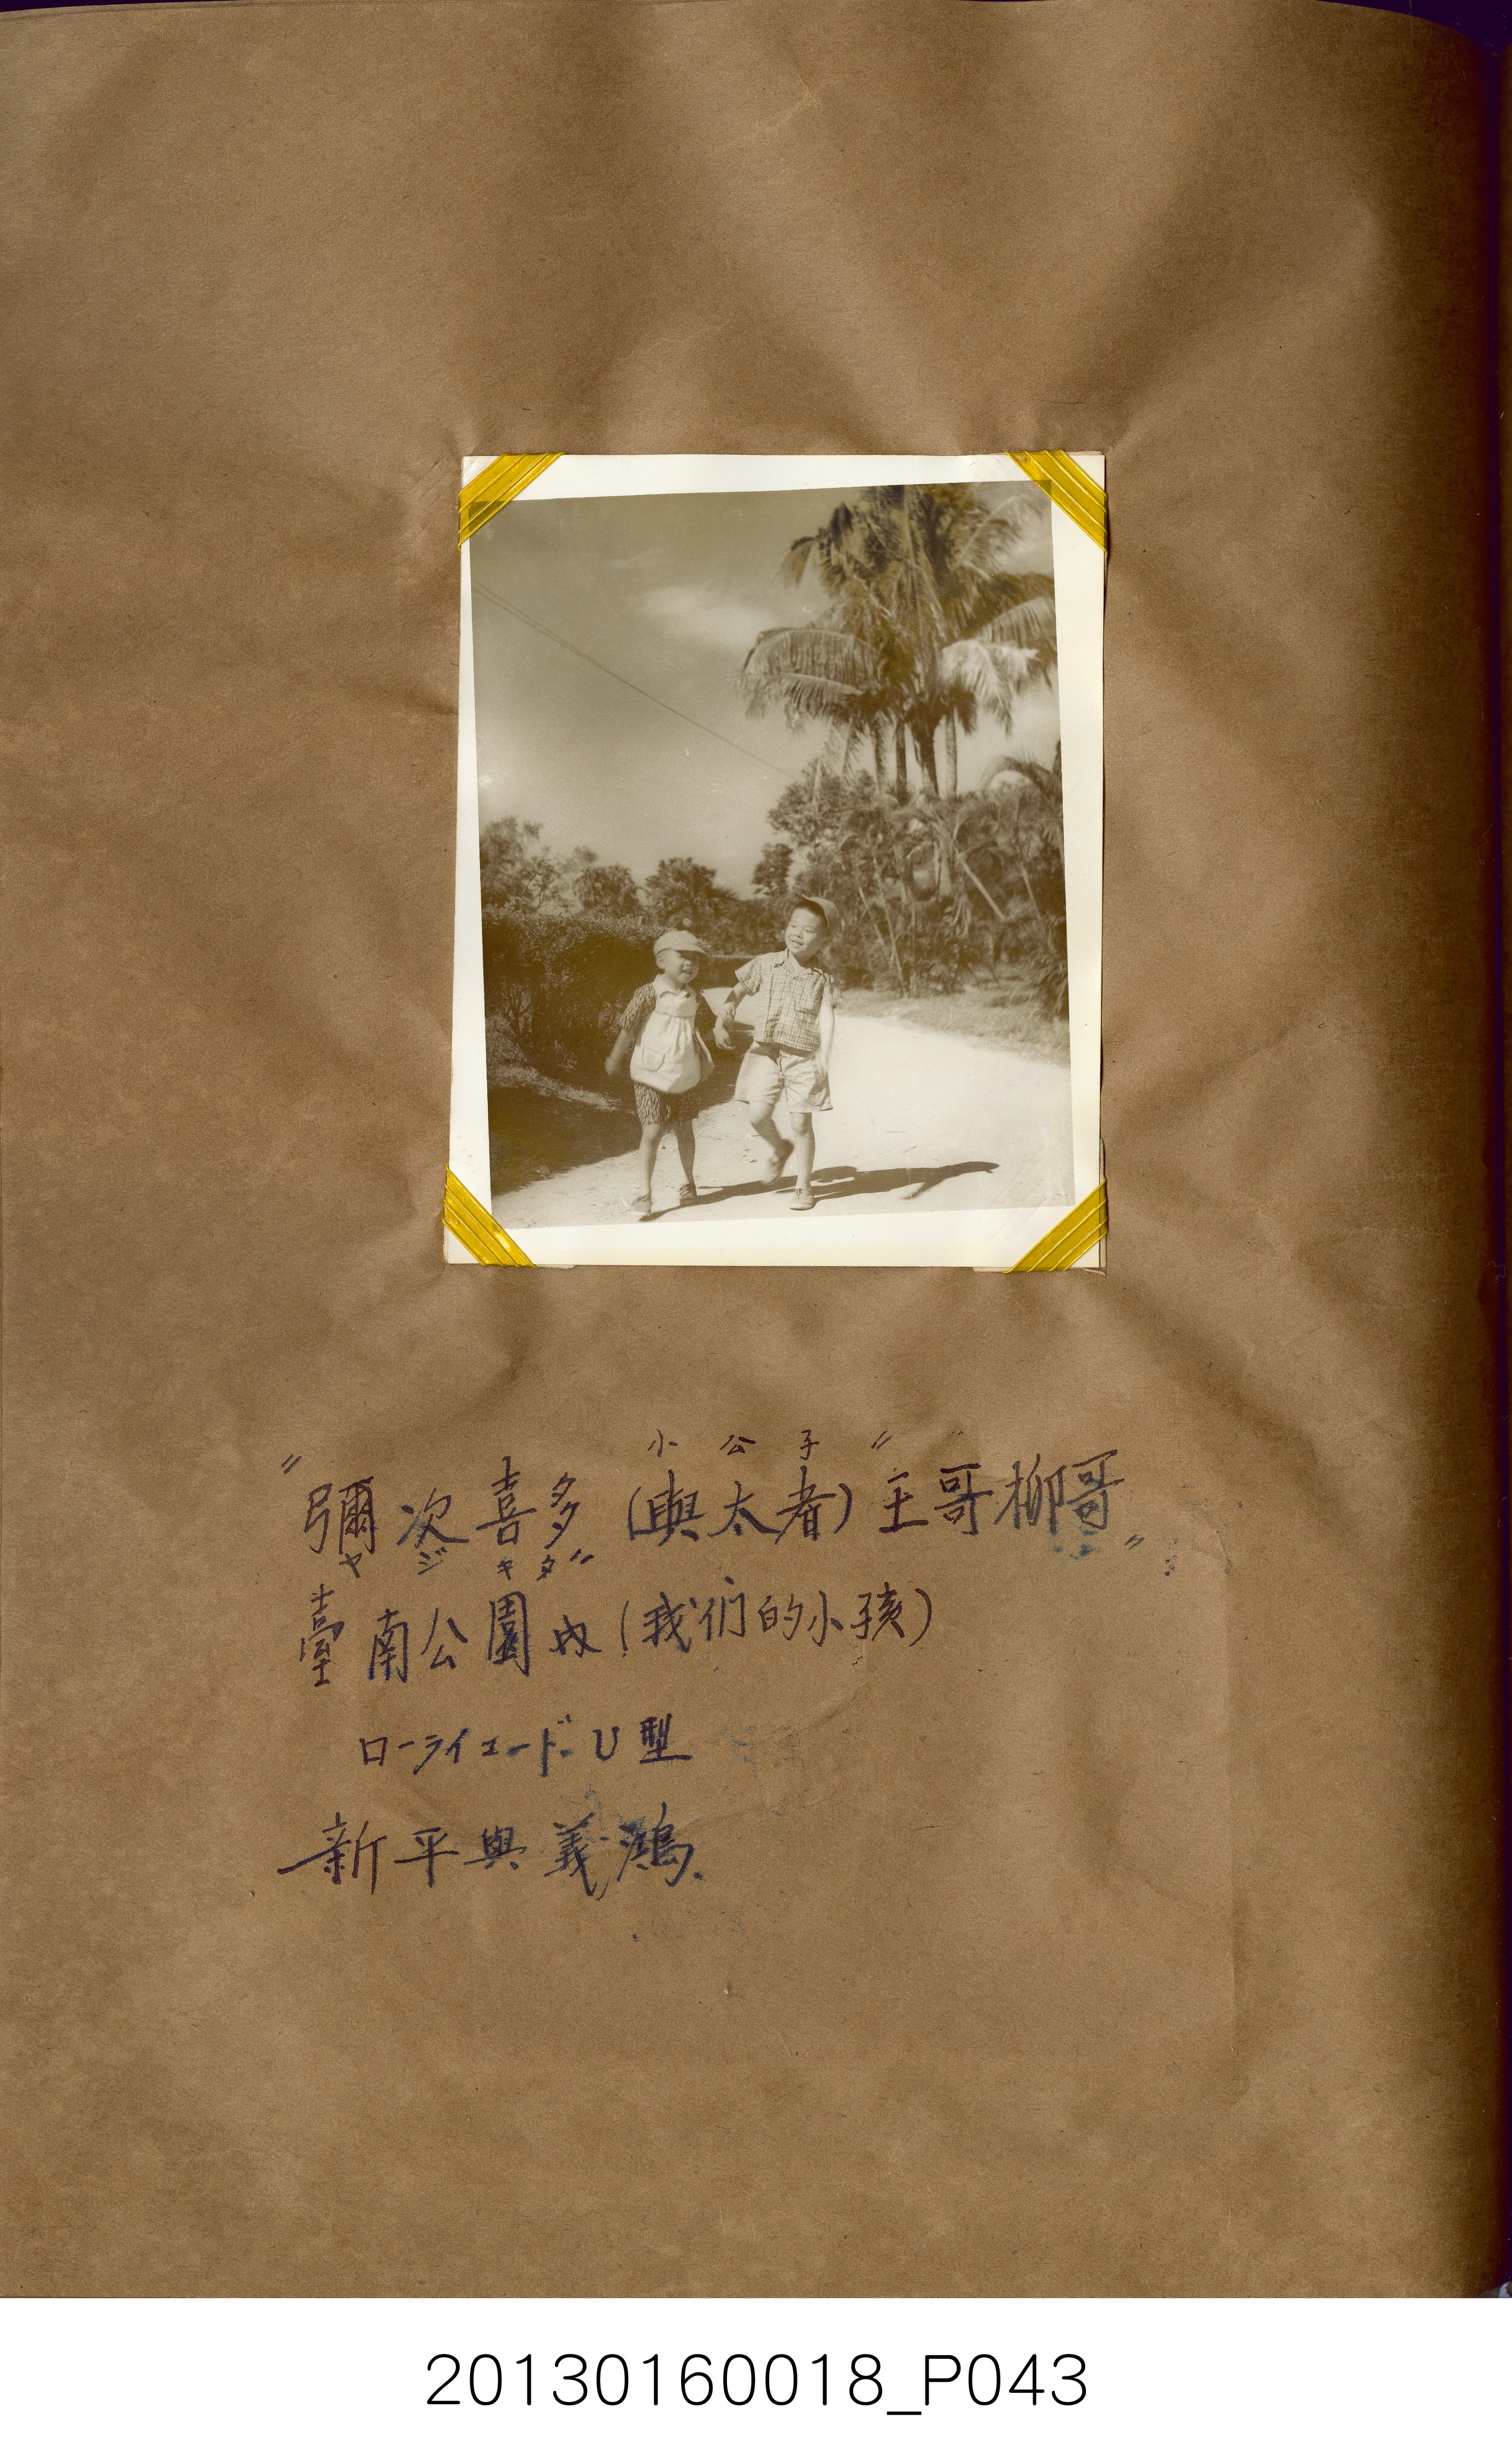 小公子〃
〃彌次喜多(與太者)王哥柳哥〃
ヤジキタ〃
臺南公園內(我们的小孩)
ローライコードU型
新平與義鴻.
20130160018_P043